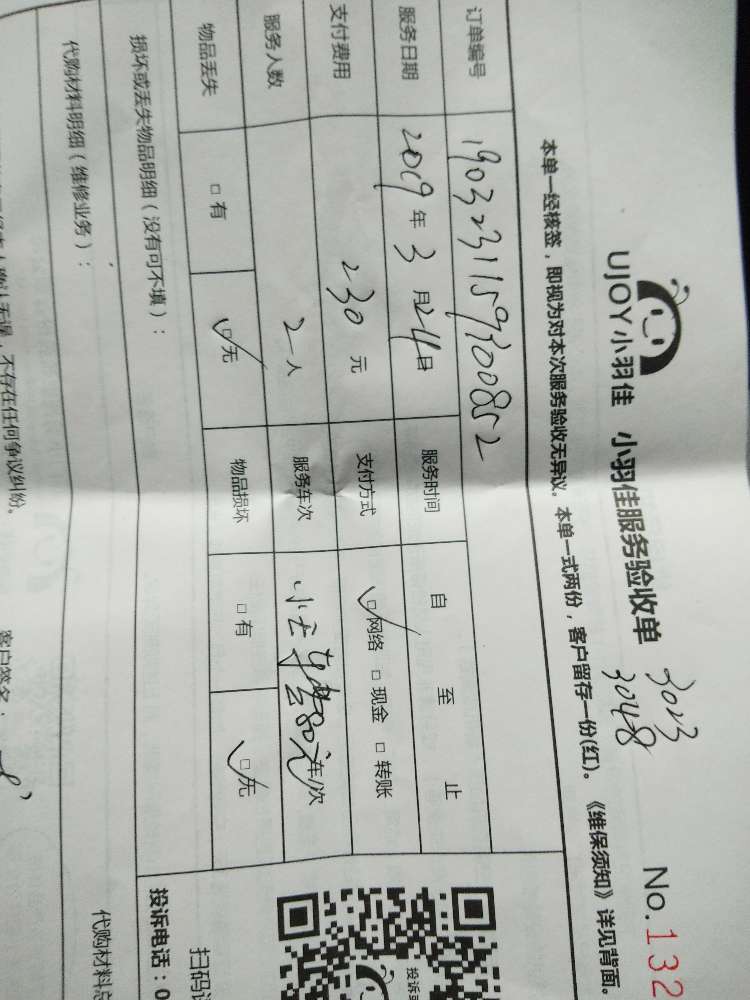 UJOY小羽佳 小羽佳服务验收单
3023
3048
No.132
本单一经核签，即视为对本次服务验收无异议。本单一式两份，客户留存一份(红)。《维保须知》详见背面。
订单编号 1903231159300852
服务日期 2019年3月24日 服务时间 自 至 止
支付费用 230元 支付方式 ☑网络 □现金 □转账
服务人数 2人 服务车次 车/次
物品丢失 □有 ☑无 物品损坏 □有 ☑无
损坏或丢失物品明细（没有可不填）：
代购材料明细（维修业务）： 代购材料总
投诉电话：0
扫码
投诉
不存在任何争议纠纷。
客户签名：